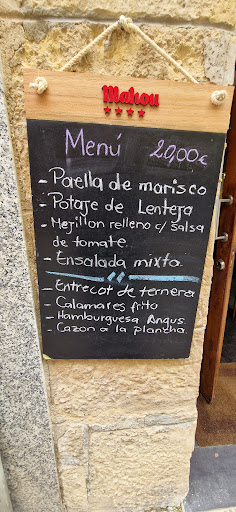 Mahou
Menú 20,00€
- Paella de marisco
- Potaje de Lenteja
- Mejillon relleno c/ salsa
de tomate.
- Ensalada mixta.
- Entrecot de ternera
- Calamares frito
- Hamburguesa Angus
- Cazon a la plancha.